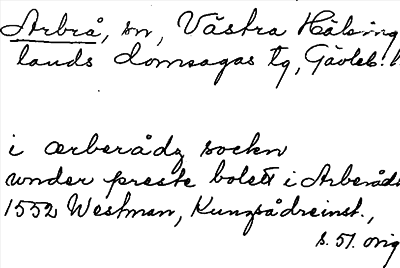 Arbrå, sn, Västra Hälsing
lands domsagas tg, Gävleb. l
i ærberådz sockn
wnder preste bolett i Arberåd
1552 Westman, Kungsådreinst.,
s. 51. orig